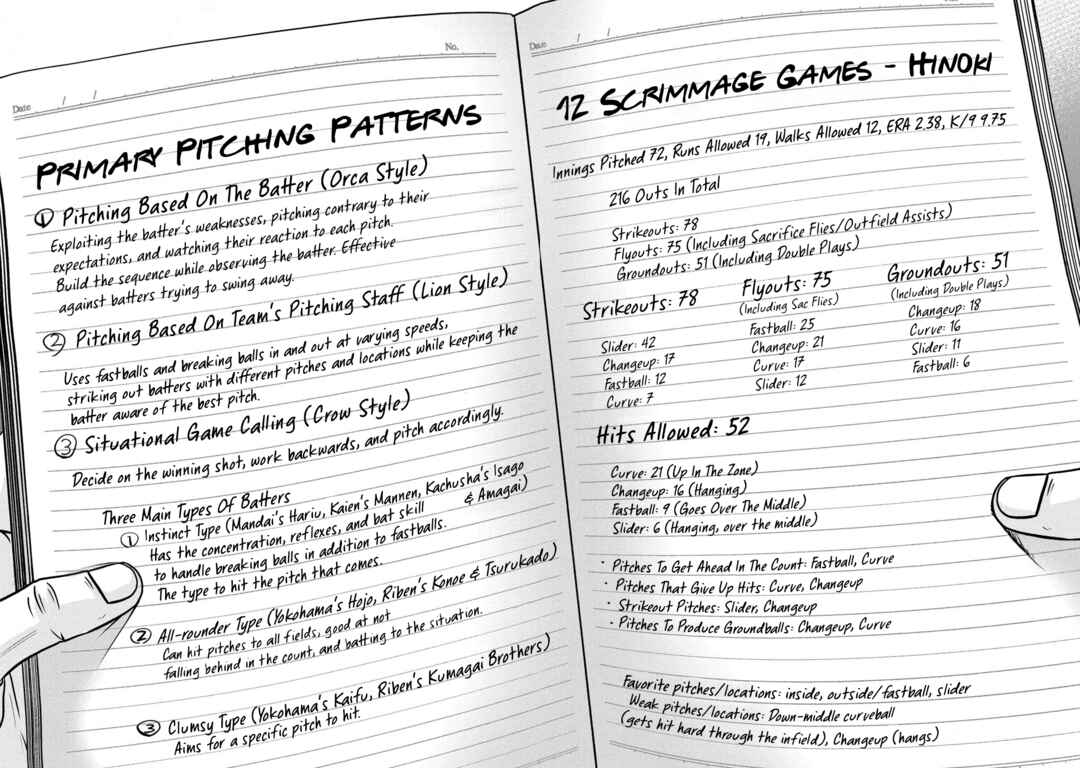 No.
Date / /
PRIMARY PITCHING PATTERNS
① Pitching Based On The Batter (Orca Style)
Exploiting the batter's weaknesses, pitching contrary to their
expectations, and watching their reaction to each pitch.
Build the sequence while observing the batter. Effective
against batters trying to swing away.
② Pitching Based On Team's Pitching Staff (Lion Style)
Uses fastballs and breaking balls in and out at varying speeds,
striking out batters with different pitches and locations while keeping the
batter aware of the best pitch.
③ Situational Game Calling (Crow Style)
Decide on the winning shot, work backwards, and pitch accordingly.
Three Main Types Of Batters
① Instinct Type (Mandai's Hariu, Kaien's Mannen, Kachusha's Isago
& Amagai)
Has the concentration, reflexes, and bat skill
to handle breaking balls in addition to fastballs.
The type to hit the pitch that comes.
② All-rounder Type (Yokohama's Hojo, Riben's Konoe & Tsurukado)
Can hit pitches to all fields, good at not
falling behind in the count, and batting to the situation.
③ Clumsy Type (Yokohama's Kaifu, Riben's Kumagai Brothers)
Aims for a specific pitch to hit.
Date / /
12 SCRIMMAGE GAMES - HINOKI
Innings Pitched 72, Runs Allowed 19, Walks Allowed 12, ERA 2.38, K/9 9.75
216 Outs In Total
Strikeouts: 78
Flyouts: 75 (Including Sacrifice Flies/Outfield Assists)
Groundouts: 51 (Including Double Plays)
Strikeouts: 78
Slider: 42
Changeup: 17
Fastball: 12
Curve: 7
Flyouts: 75
(Including Sac Flies)
Fastball: 25
Changeup: 21
Curve: 17
Slider: 12
Groundouts: 51
(Including Double Plays)
Changeup: 18
Curve: 16
Slider: 11
Fastball: 6
Hits Allowed: 52
Curve: 21 (Up In The Zone)
Changeup: 16 (Hanging)
Fastball: 9 (Goes Over The Middle)
Slider: 6 (Hanging, over the middle)
· Pitches To Get Ahead In The Count: Fastball, Curve
· Pitches That Give Up Hits: Curve, Changeup
· Strikeout Pitches: Slider, Changeup
· Pitches To Produce Groundballs: Changeup, Curve
Favorite pitches/locations: inside, outside/fastball, slider
Weak pitches/locations: Down-middle curveball
(gets hit hard through the infield), Changeup (hangs)